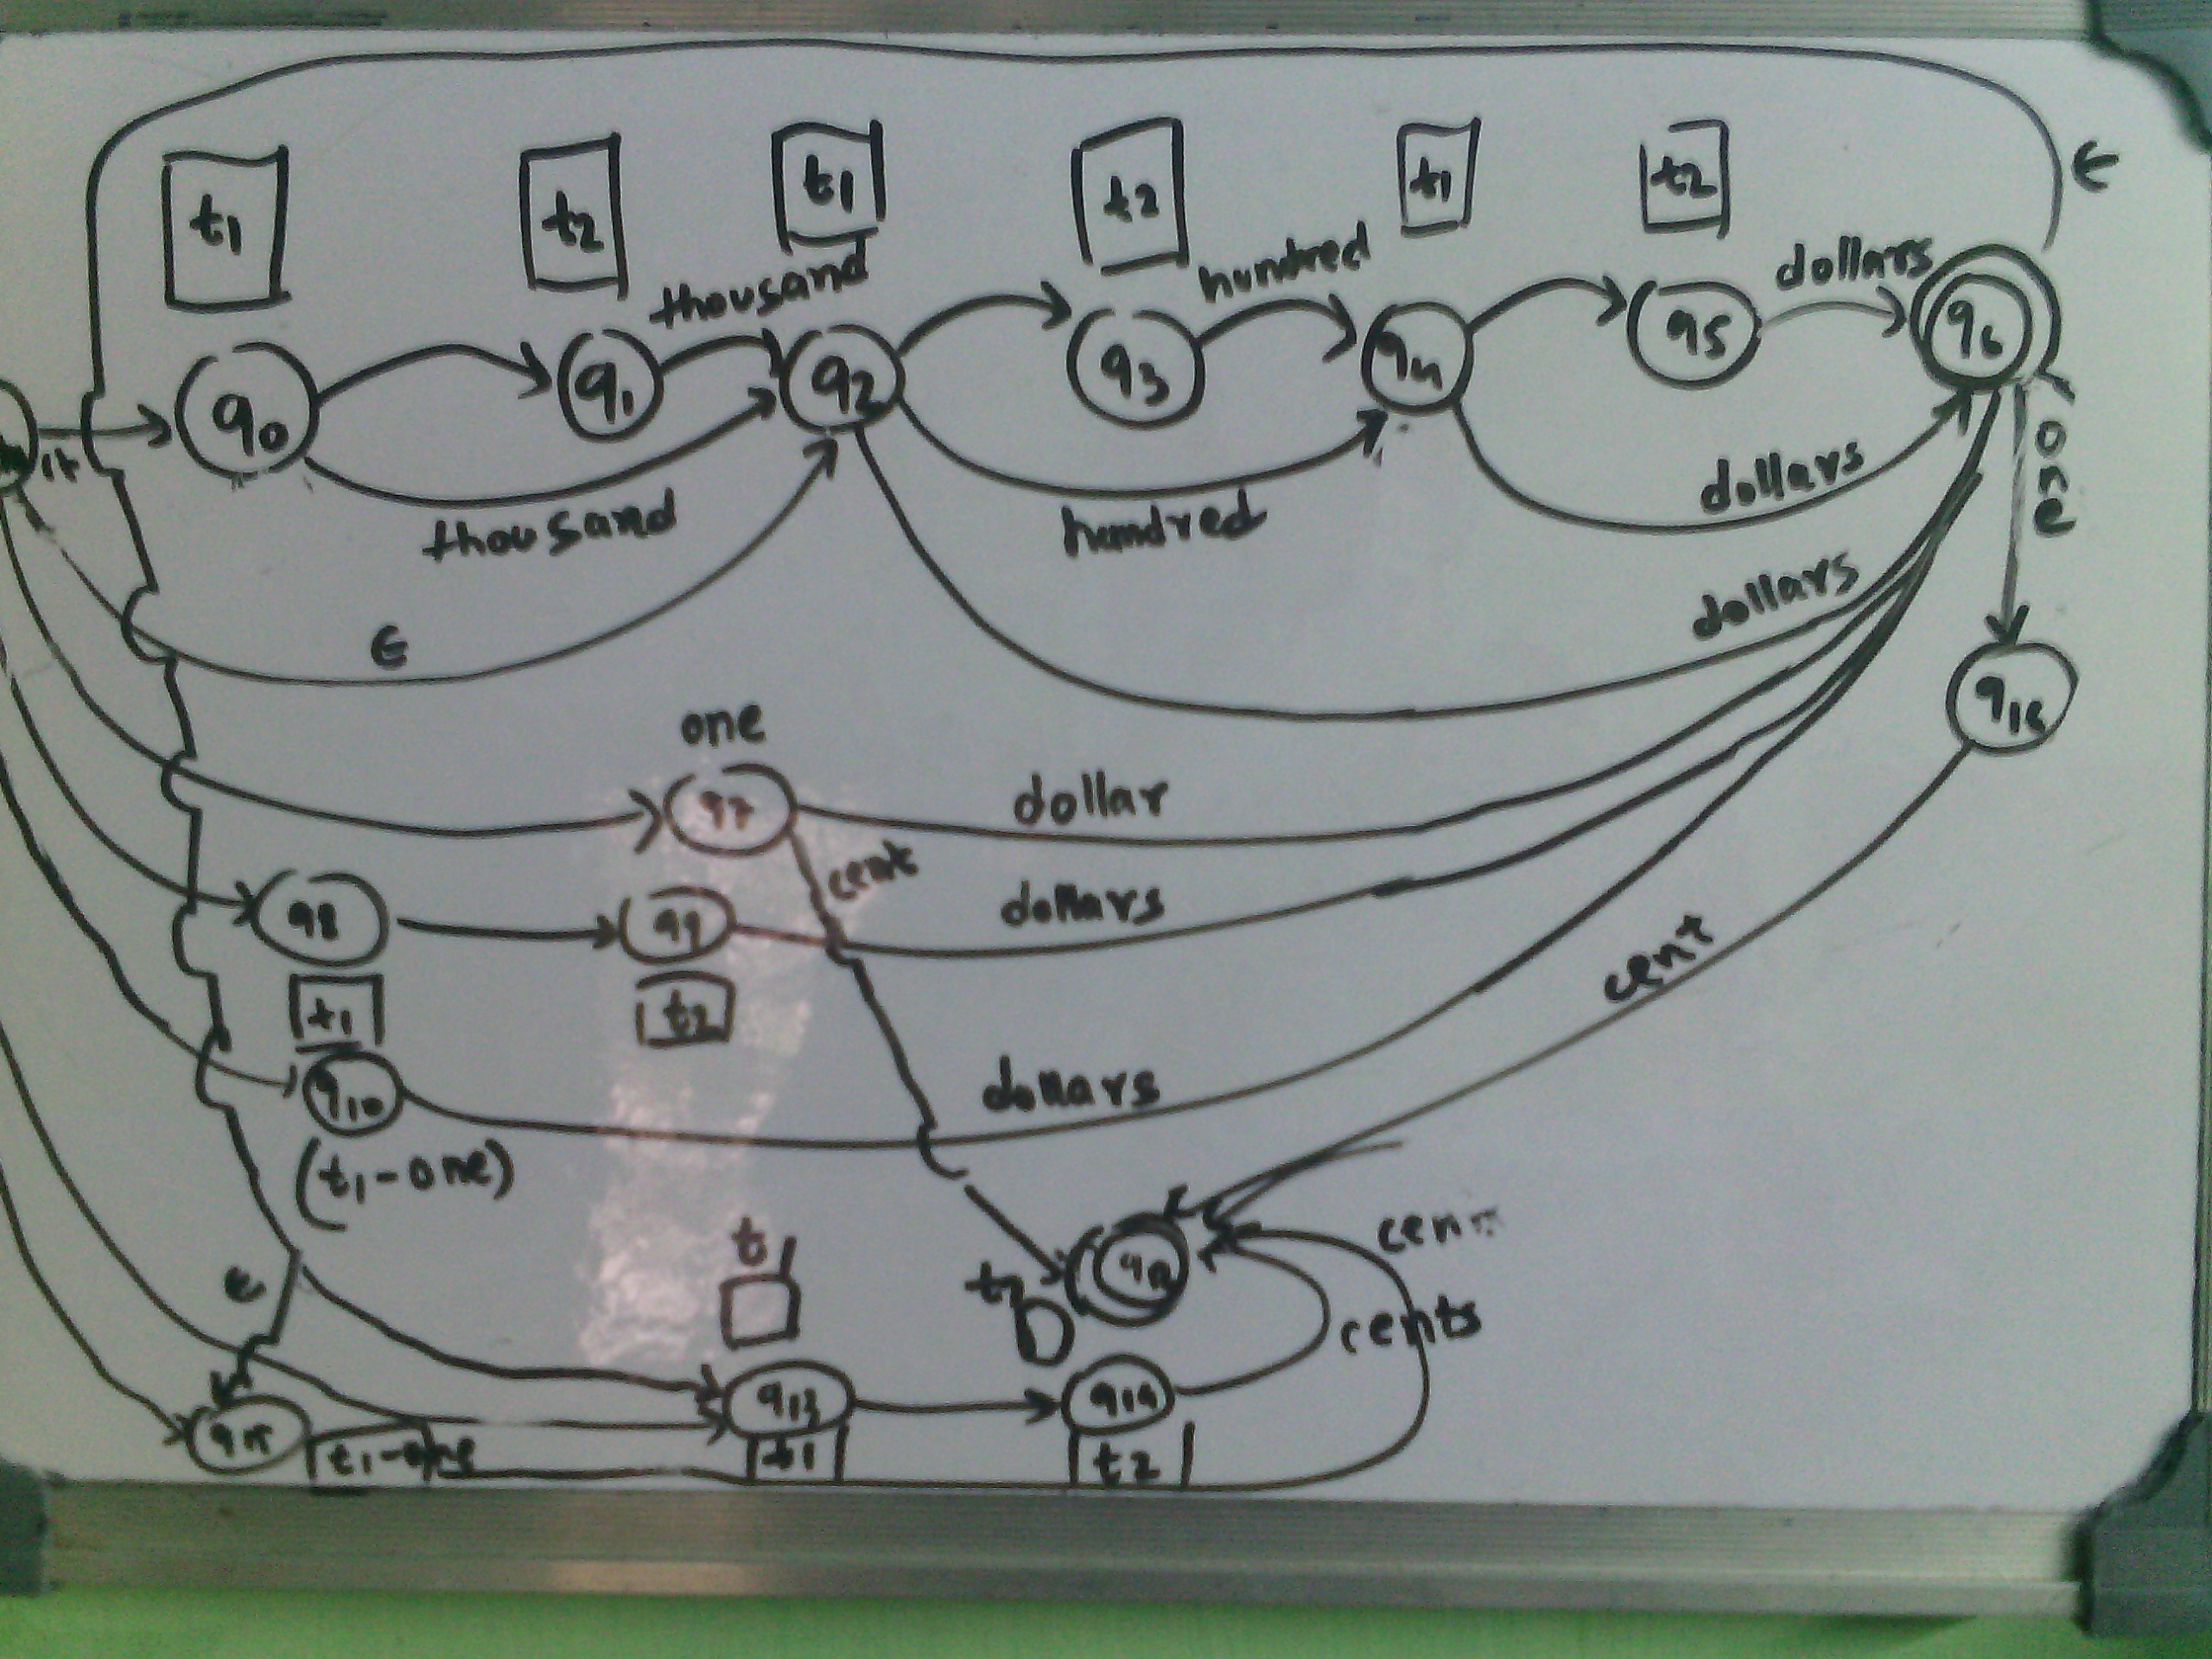 t1 t2 t1 t2 t1 t2 ε
thousand hundred dollars
q0 q1 q2 q3 q4 q5 q6
it
one
thousand hundred dollars
ε dollars
one
q7 dollar
cent
q8 q9 dollars
t1 t2
cent
q10 dollars
(t1-one)
t1
t2
cents
ε
q13 q14
t1-one t1 t2